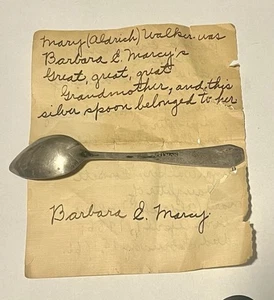 Mary (Aldrich) Walker was
Barbara S. Marcy's
Great, great, great
Grandmother, and this
silver spoon belonged to her
Barbara S. Marcy